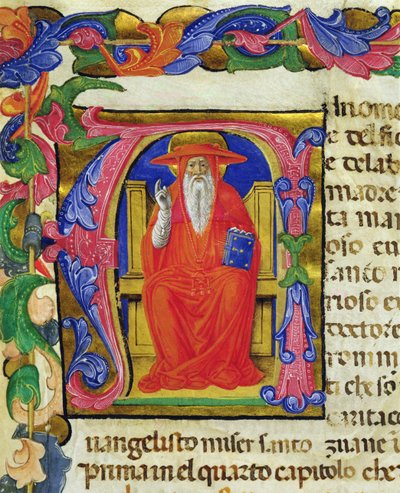 Inome
e del fi
e dela b
madre
ta mar
oso eu
santo
rioso eu
doctore
romini
ti che so
carita c
uangelisto miser santo zuane i
prima in el quarto capitolo che